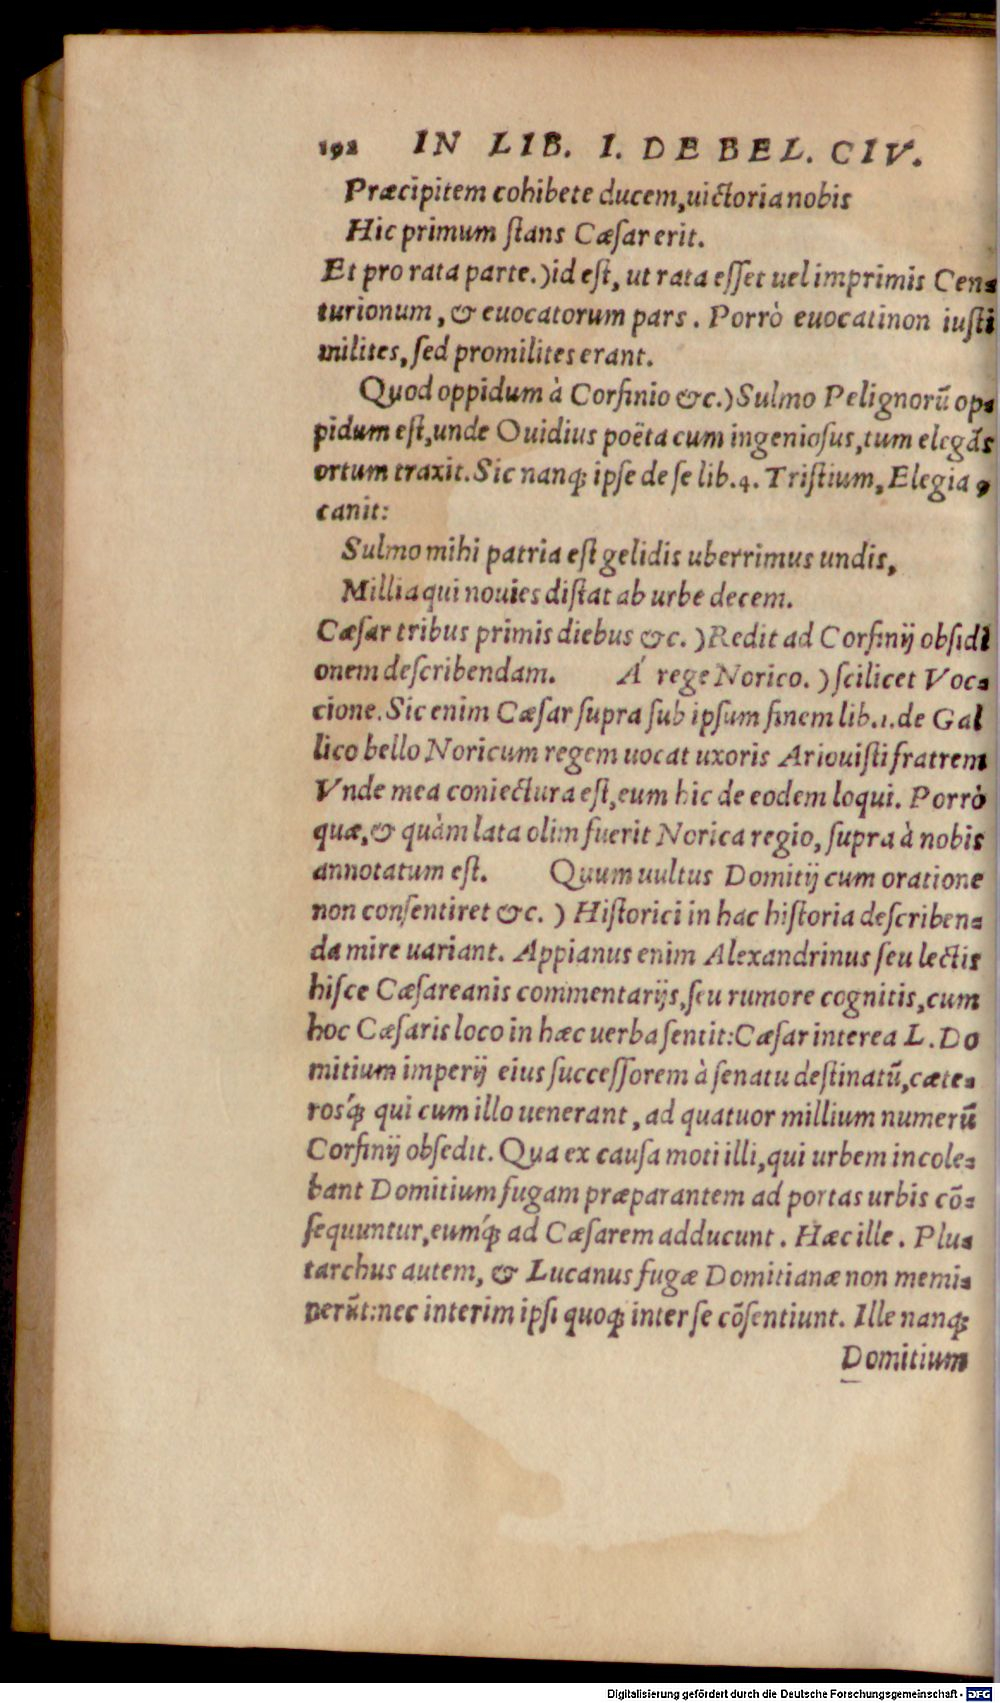 192 IN LIB. I. DE BEL. CIV.
Præcipitem cohibete ducem, uictoria nobis
Hic primum ſtans Cæſar erit.
Et pro rata parte.) id eſt, ut rata eſſet uel imprimis Cen⸗
turionum, & euocatorum pars. Porrò euocati non iuſti
milites, ſed promilites erant.
Quod oppidum à Corfinio &c.) Sulmo Pelignorũ op⸗
pidum eſt, unde Ouidius poëta cum ingenioſus, tum elegãs
ortum traxit. Sic nanq; ipſe de ſe lib. 4. Triſtium, Elegia 9
canit:
Sulmo mihi patria eſt gelidis uberrimus undis,
Millia qui nouies diſtat ab urbe decem.
Cæſar tribus primis diebus &c.) Redit ad Corfinij obſidi
onem deſcribendam. Á rege Norico.) ſcilicet Voc⸗
cione. Sic enim Cæſar ſupra ſub ipſum finem lib. 1. de Gal
lico bello Noricum regem uocat uxoris Ariouiſti fratrem
Vnde mea coniectura eſt, eum hic de eodem loqui. Porrò
quæ, & quàm lata olim fuerit Norica regio, ſupra à nobis
annotatum eſt. Quum uultus Domitij cum oratione
non conſentiret &c.) Hiſtorici in hac hiſtoria deſcriben⸗
da mire uariant. Appianus enim Alexandrinus ſeu lectis
hiſce Cæſareanis commentarijs, ſeu rumore cognitis, cum
hoc Cæſaris loco in hæc uerba ſentit: Cæſar interea L. Do
mitium imperij eius ſucceſſorem à ſenatu deſtinatũ, cæte⸗
rosq́; qui cum illo uenerant, ad quatuor millium numerũ
Corfinij obſedit. Qua ex cauſa moti illi, qui urbem incole⸗
bant Domitium fugam præparantem ad portas urbis cõ⸗
ſequuntur, eumq́; ad Cæſarem adducunt. Hæc ille. Plu⸗
tarchus autem, & Lucanus fugæ Domitianæ non memi⸗
nerũt: nec interim ipſi quoq; inter ſe cõſentiunt. Ille nanq;
Domitium
Digitalisierung gefördert durch die Deutsche Forschungsgemeinschaft - DFG